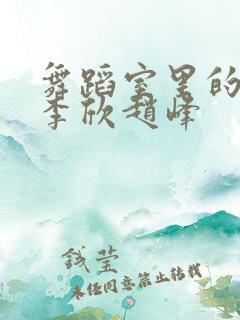 舞蹈室里的
李欣赵峰
钱莹
未经同意禁止转载